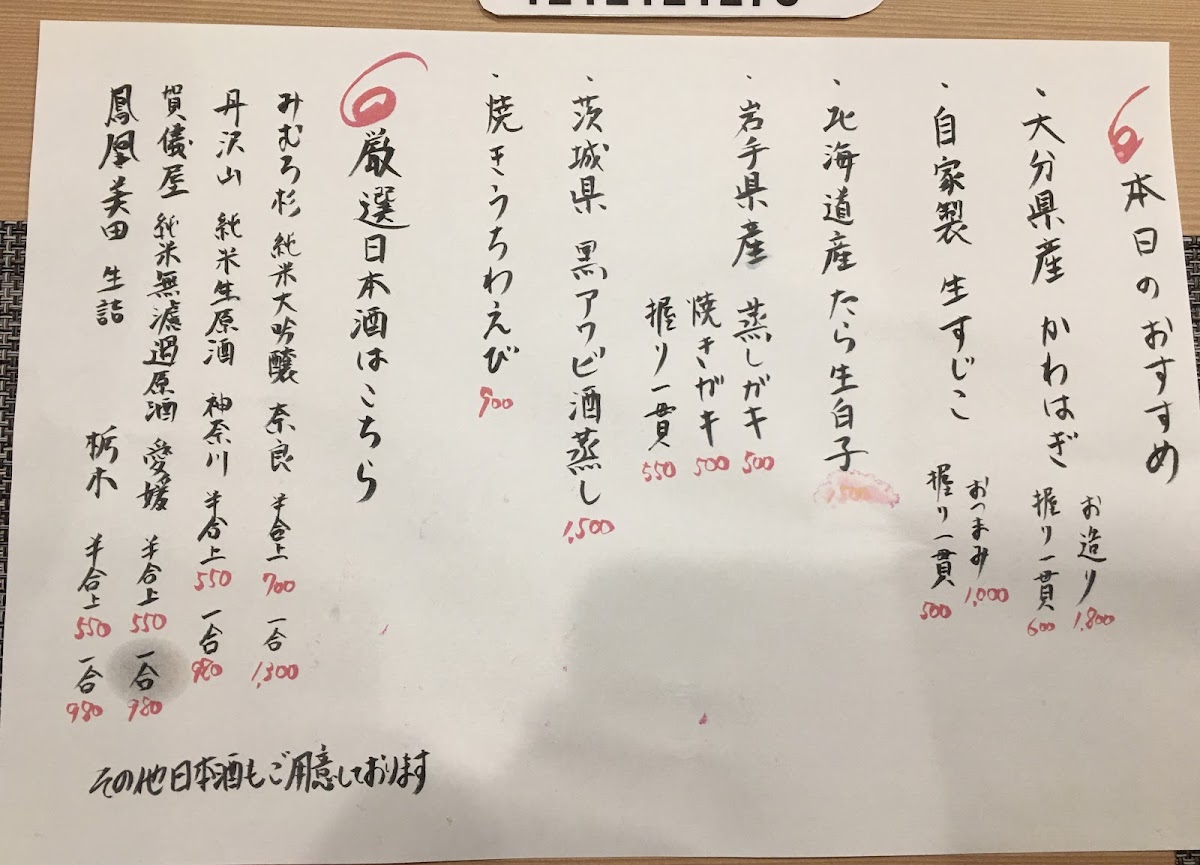 本日のおすすめ
・大分県産 かわはぎ
お造り 1,800
握り一貫 600
・自家製 生すじこ
おつまみ 1,000
握り一貫 500
・北海道産 たら生白子
1,500
・岩手県産
蒸しガキ 500
焼きガキ 500
握り一貫 550
・茨城県 黒アワビ酒蒸し 1,500
・焼きうちわえび 900
厳選日本酒はこちら
みむろ杉 純米大吟醸 奈良 半合上 700 一合 1,300
丹沢山 純米生原酒 神奈川 半合上 550 一合 980
賀儀屋 純米無濾過原酒 愛媛 半合上 550 一合 980
鳳凰美田 生詰 栃木 半合上 550 一合 980
その他日本酒もご用意しております